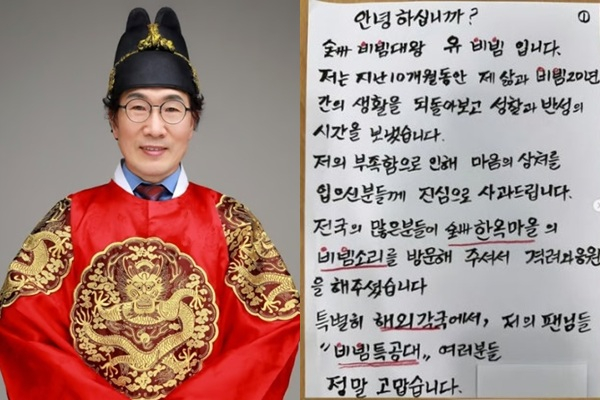 안녕하십니까? ①
全州 비빔대왕 유 비빔 입니다.
저는 지난10개월동안 제 삶과 비빔20여년
간의 생활을 되돌아보고 성찰과 반성의
시간을 보냈습니다.
저의 부족함으로 인해 마음의 상처를
입으신분들께 진심으로 사과드립니다.
전국의 많은분들이 全州 한옥마을의
비빔소리를 방문해 주셔서 격려와응원
을 해주셨습니다
특별히 해외각국에서, 저의 팬님들
"비빔특공대„ 여러분들
정말 고맙습니다.